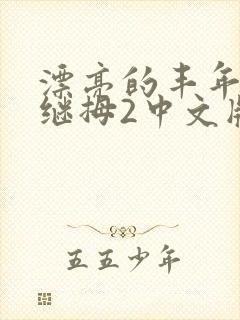 漂亮的丰年
继拇2中文版
五五少年